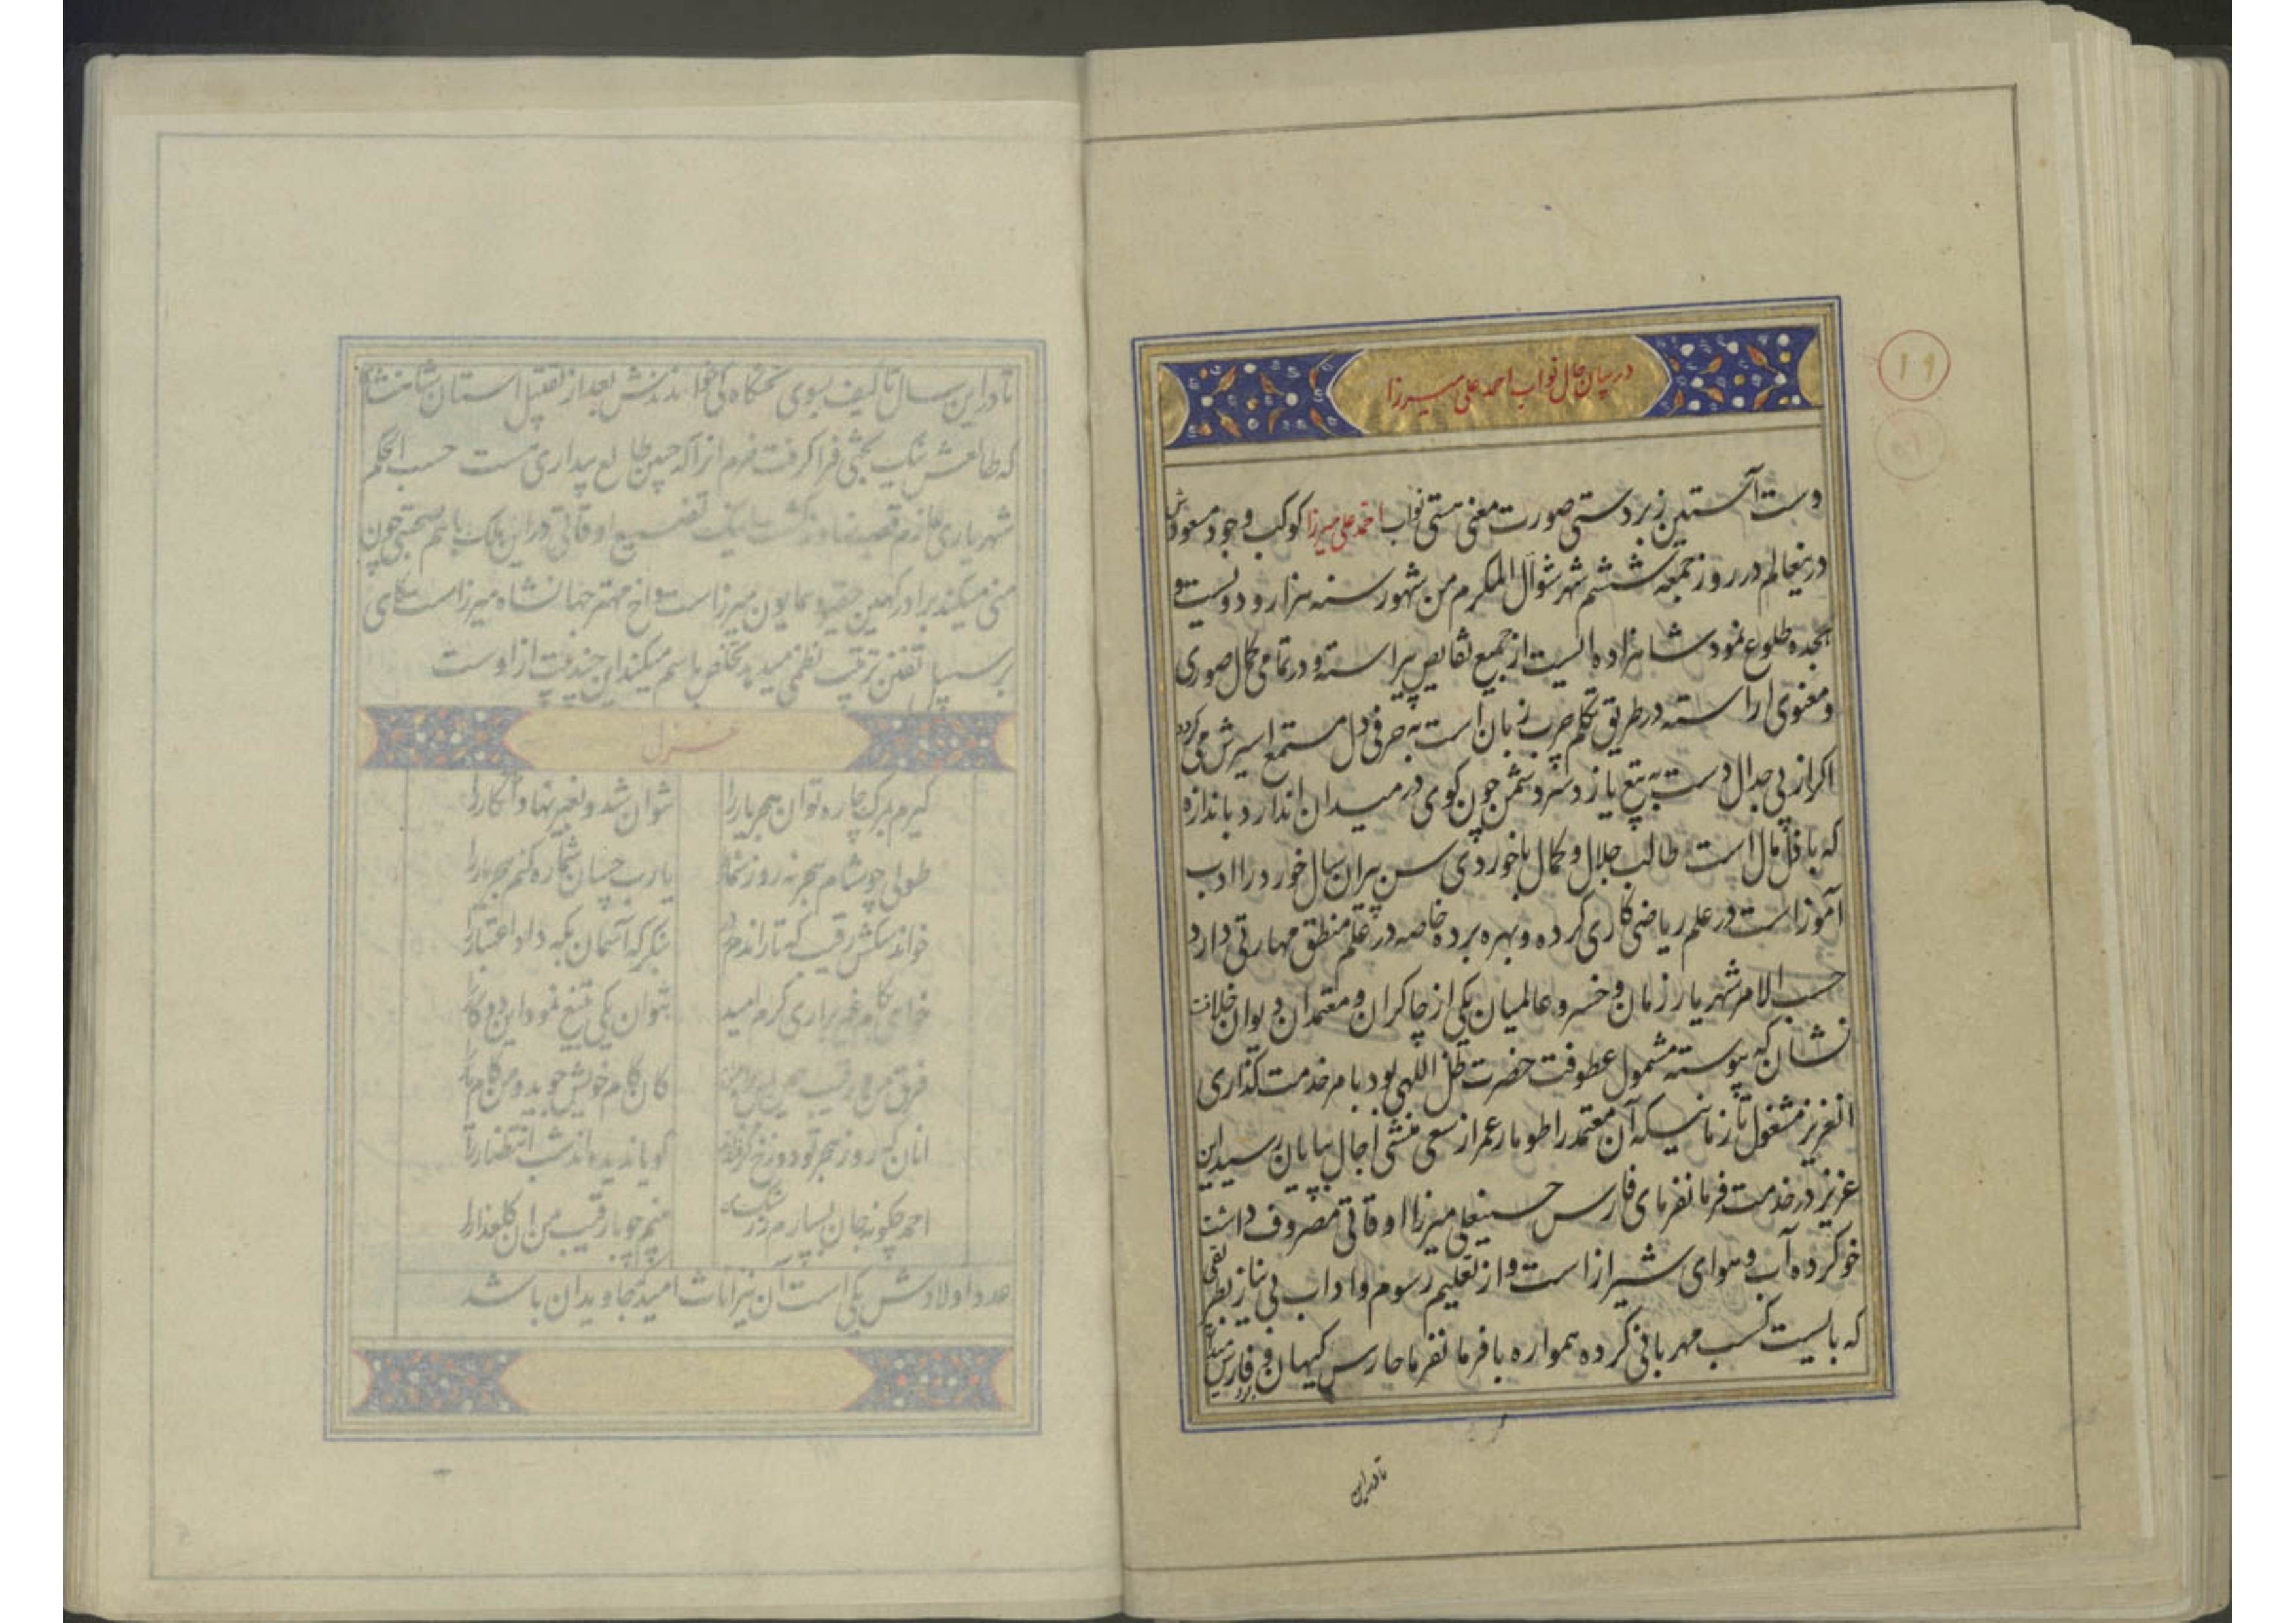 ۱۹
در بیان حال نواب احمد علی میرزا
دست آستین زبردستی صورت معنی هستی نواب احمد علی میرزا کوکب وجود مسعودش
درینعالم در روز جمعه ششم شهر شوال المکرم من شهور سنه هزار و دویست و
هجده طلوع نمود شاهزاده ایست از جمیع نقایص پیراسته و در تمامی کمال صوری
و معنوی اراسته در طریق تکلم چرب زبان است به حرفی دل مستمع اسیرش می‌کردد
اکر از پی جدال دست به تیغ یازد سر دشمن چون کوی در میدان اندازد باندازه
که با قل مال است طالب جلال و کمال با خوردی سن پیران سال خورد را ادب
آموز است در علم ریاضی کاری کرده و بهره برده خاصه در علم منطق مهارتی دارد
حسب الامر شهریار زمان و خسرو عالمیان یکی از چاکران و معتمدان دیوان خلافت
نشان که پیوسته مشمول عطوفت حضرت ظل اللهی بود بامر خدمت کذاری
انعزیز مشغول تا زمانیکه آن معتمد را طومار عمر از سعی منشی اجال بپایان رسید این
عزیز در خدمت فرمانفرمای فارس حسینعلی میرزا اوقاتی مصروف داشت
خو کرده آب و هوای شیراز است و از تعلیم رسوم و اداب بی نیاز بطریقی
که بایست کسب مهربانی کرده همواره با فرمانفرما حارس کیهان و فارس میدان بود
تا در این
تا در این سال تا کیف بسوی تختکاه کی خواندندش بعد از تقبیل استان شاهنشاه
که طالعش نیک بختی فرا کرفت خرم از آنکه چنین طالع بیداری هست حسب الحکم
شهریاری عازم قصبه نهاوند کشت اینک تضییع اوقاتی در این ملک با هم صحبتی چون
منی میکند برادر کهین حقیقیه همایون میرزا است و اخ مهتر جهانشاه میرزا است کاهی
بر سبیل تفنن ترتیب نظمی میدهد تخلص باسم میکند این چند بیت از اوست
غزل
کیرم بمرک چاره توان هجر یار را نتوان شد و بغیر نهاد آنکار را
طولی چو شام هجر نه روز شمار را یارب چسان شماره کنم هجر یار را
خواند سکش رقیب که تا راندم ز در بنکر که آسمان بکه داد اعتبار را
خواهی کام غیر براری کرم امید بتوان بیک تیغ نمود این دو کار را
فرق من و رقیب همین بس کان کام خویش جوید و من کام یار را
انان که روز هجر تو دوزخ کرفته‌اند کویا ندیده اند شب انتظار را
احمد چکونه جان نسپارم ز رشک بینم چو با رقیب من ان کلعذار را
عدد اولادش یکی است آن نیز اناث امید که جاویدان باشد